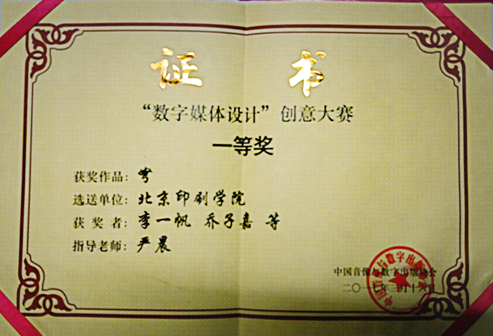 证 书
“数字媒体设计”创意大赛
一等奖
获奖作品：梦
选送单位：北京印刷学院
获奖者：李一帆 乔子嘉 等
指导老师：严晨
中国音像与数字出版协会